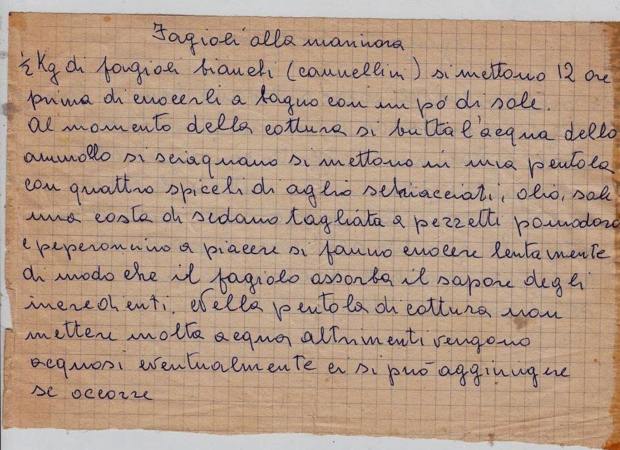 Fagioli alla marinara
½ Kg di fagioli bianchi (cannellini) si mettono 12 ore
prima di cuocerli a bagno con un pó di sale.
Al momento della cottura si butta l'acqua dello
ammollo si sciaquano si mettono in una pentola
con quattro spicchi di aglio schiacciati, olio, sale
una costa di sedano tagliata a pezzetti pomodoro
e peperoncino a piacere si fanno cuocere lentamente
di modo che il fagiolo assorba il sapore degli
incredienti. Nella pentola di cottura non
mettere molta acqua altrimenti vengono
acquosi eventualmente si può aggiungere
se occorre